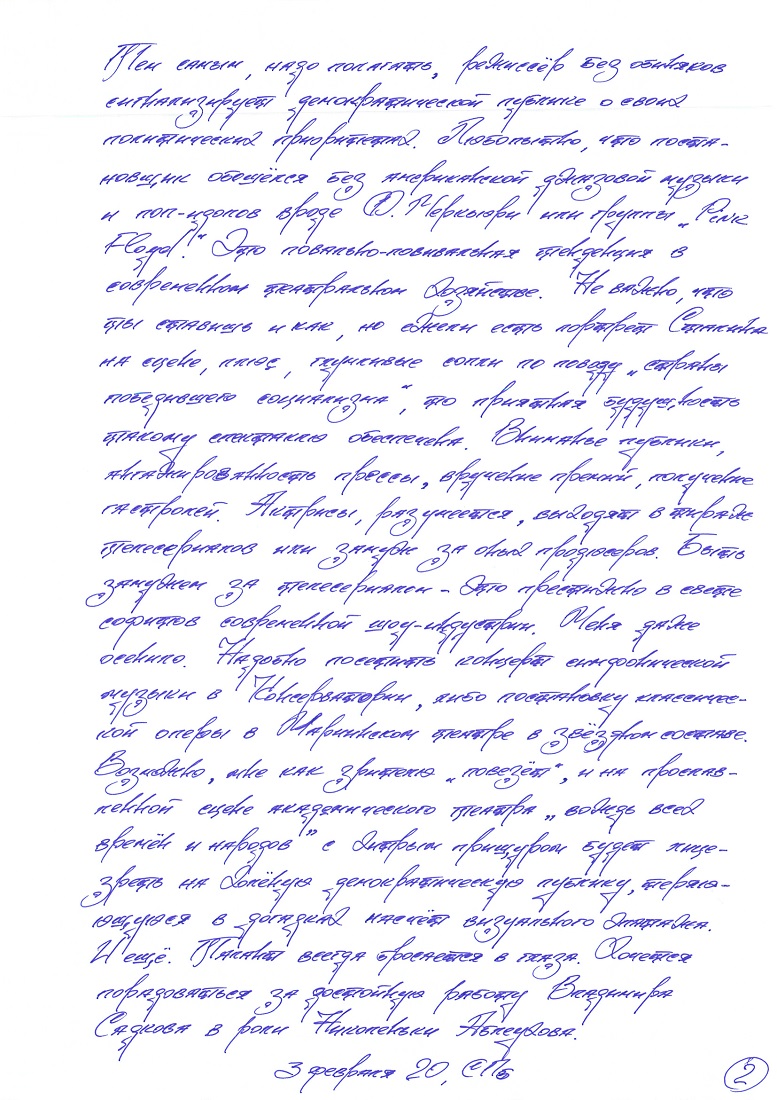 Тем самым, надо полагать, режиссёр без обиняков
сигнализирует демократической публике о своих
политических приоритетах. Любопытно, что поста-
новщик обошёлся без американской джазовой музыки
и поп-идолов вроде Ф. Меркьюри или группы „Pink
Floyd!“ Это повально-повивальная тенденция в
современном театральном хозяйстве. Не важно, что
ты ставишь и как, но ежели есть портрет Сталина
на сцене, плюс, глумливые сопли по поводу „страны
победившего социализма“, то приятная будущность
такому спектаклю обеспечена. Вниманье публики,
ангажированность прессы, вручение премий, получение
гастролей. Актрисы, разумеется, выходят в тираж
телесериалов или замуж за оных продюсеров. Быть
замужем за телесериалом - это престижно в свете
софитов современной шоу-индустрии. Меня даже
осенило. Надобно посетить концерт симфонической
музыки в Консерватории, либо постановку классичес-
кой оперы в Мариинском театре в звёздном составе.
Возможно, мне как зрителю „повезёт“, и на прослав-
ленной сцене академического театра „вождь всех
времён и народов” с хитрым прищуром будет лице-
зреть на холёную демократическую публику, теряю-
ющуюся в догадках насчёт визуального эпатажа.
И ещё. Талант всегда бросается в глаза. Хочется
порадоваться за достойную работу Владимира
Садкова в роли Николеньки Аблеухова.
3 февраля 20, СПб
2